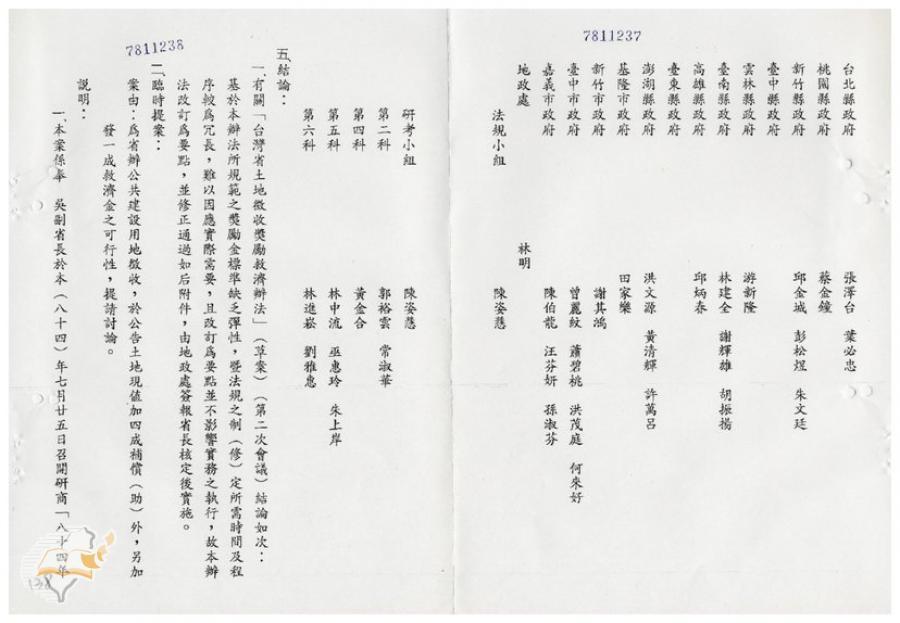 7811237
台北縣政府 張澤台 葉必忠
桃園縣政府 蔡金鐘
新竹縣政府 邱金城 彭松煜 朱文廷
臺中縣政府
雲林縣政府 游新隆
臺南縣政府 林建全 謝輝雄 胡振揚
高雄縣政府 邱炳春
臺東縣政府
澎湖縣政府 洪文源 黃清輝 許萬呂
基隆市政府 田家樂
新竹市政府 謝其鴻
臺中市政府 曾麗紋 蕭碧桃 洪茂庭 何來好
嘉義市政府 陳伯龍 汪芬妍 孫淑芬
地政處 林明
法規小組 陳姿慧
7811238
研考小組 陳姿慧
第二科 郭裕雲 常淑華
第四科 黃金合
第五科 林中流 巫惠玲 朱上岸
第六科 林進崧 劉雅惠
五、結論：
一有關「台灣省土地徵收獎勵救濟辦法」（草案）（第二次會議）結論如次：
基於本辦法所規範之獎勵金標準缺乏彈性，暨法規之制（修）定所需時間及程
序較為冗長，難以因應實際需要，且改訂為要點並不影響實務之執行，故本辦
法改訂為要點，並修正通過如后附件，由地政處簽報省長核定後實施。
二、臨時提案：
案由：為省辦公共建設用地徵收，於公告土地現值加四成補償（助）外，另加
發一成救濟金之可行性，提請討論。
說明：
一、本案係奉 吳副省長於本（八十四）年七月廿五日召開研商「八十四年
138